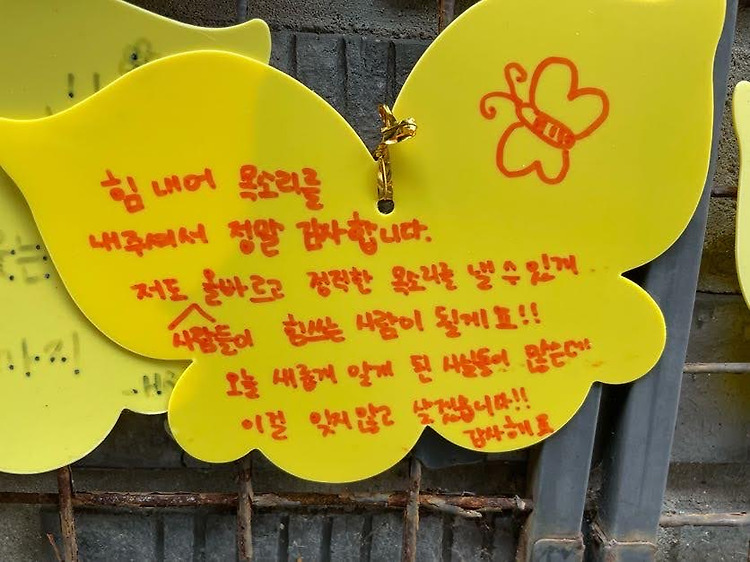 힘 내어 목소리를
내주셔서 정말 감사합니다.
저도 올바르고 정직한 목소리를 낼 수 있게
사람들이 힘쓰는 사람이 될게요!!
오늘 새롭게 알게 된 사실들이 많은데
이걸 잊지 않고 살겠습니다!!
감사해요